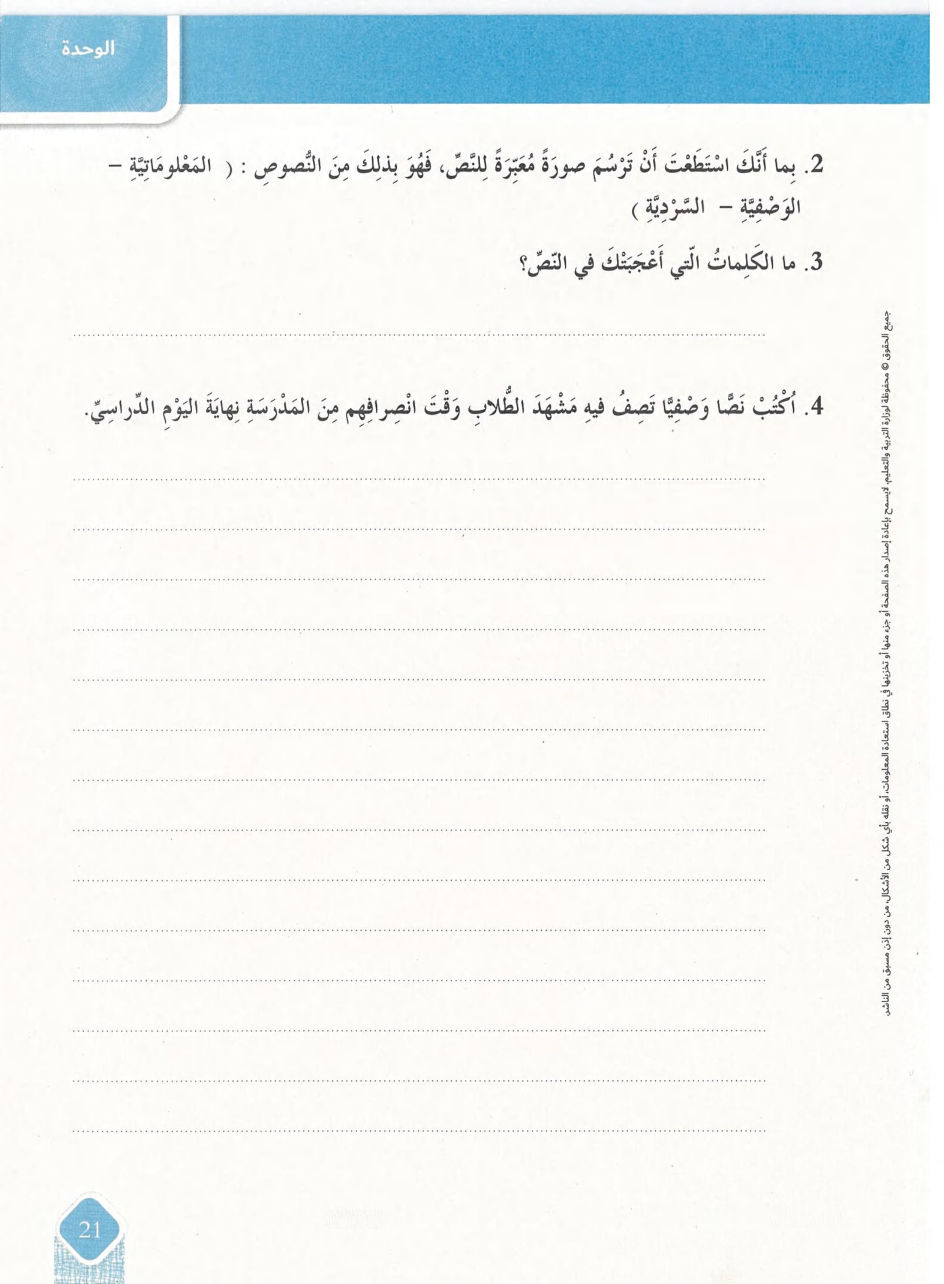 الوحدة
2. بِما أَنَّكَ اسْتَطَعْتَ أَنْ تَرْسُمَ صورَةً مُعَبِّرَةً لِلنَّصِّ، فَهُوَ بِذلِكَ مِنَ النُّصوصِ : ( المَعْلوماتِيَّةِ –
الوَصْفِيَّةِ – السَّرْدِيَّةِ )
3. ما الكَلِماتُ الّتي أَعْجَبَتْكَ في النّصِّ؟
4. اُكْتُبْ نَصًّا وَصْفِيًّا تَصِفُ فيهِ مَشْهَدَ الطُّلابِ وَقْتَ انْصِرافِهِم مِنَ المَدْرَسَةِ نِهايَةَ اليَوْمِ الدِّراسِيِّ.
جميع الحقوق © محفوظة لوزارة التربية والتعليم. لايسمح بإعادة إصدار هذه الصفحة أو جزء منها أو تخزينها في نطاق استعادة المعلومات، أو نقله بأي شكل من الأشكال، من دون إذن مسبق من الناشر.
21